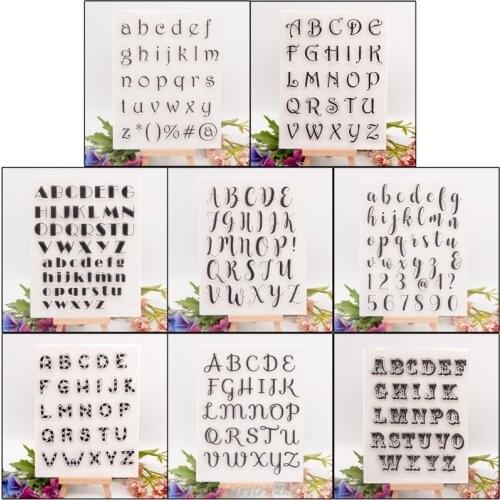 abcdef
ghijklm
nopqrs
tuvwxy
z*()%#@
ABCDE
FGHIJK
LMNOP
QRSTU
VWXYZ
ABCDEFG
HIJKLMN
OPQRSTU
VWXYZ
abcdefg
hijklmn
opqrstu
vwxyz
ABCDE
FGHIJK
LMNOP!
QRSTU
VWXYZ
abcdefg
hijklmn
opqrstu
vwxyz&
123@4!?
567890
ABCDE
FGHIJK
LMNOP
QRSTU
VWXYZ
ABCDE
FGHIJK
LMNOP
QRSTU
VWXYZ
ABCDEF
GHIJK
LMNPQ
RSTUVO
WXYZ